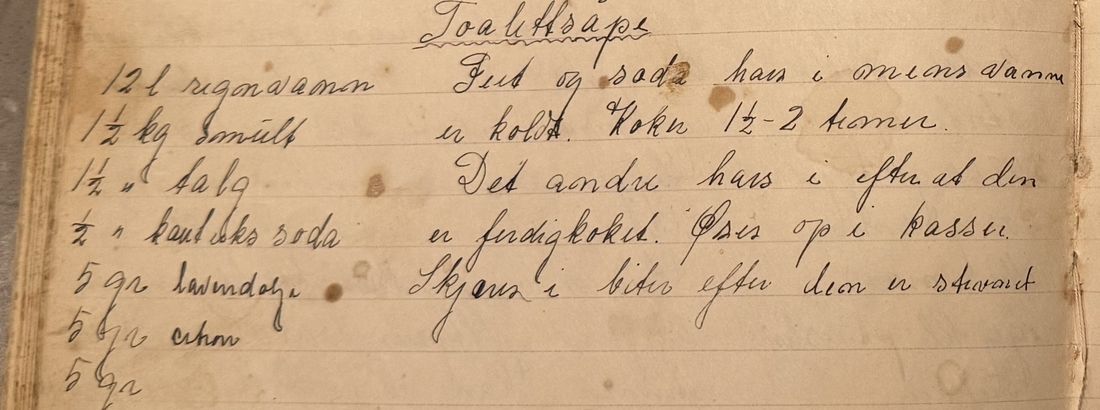 Toalettsåpe
12 l regnvann
1½ kg smult
1½ " talg
½ " kaustiks soda
5 gr lavendelolje
5 gr citron
5 gr
Fett og soda haes i mens vannet
er koldt. Koker 1½-2 timer.
Det andre haes i efter at den
er ferdigkoket. Øses op i kasser.
Skjæres i biter efter dem er stivnet